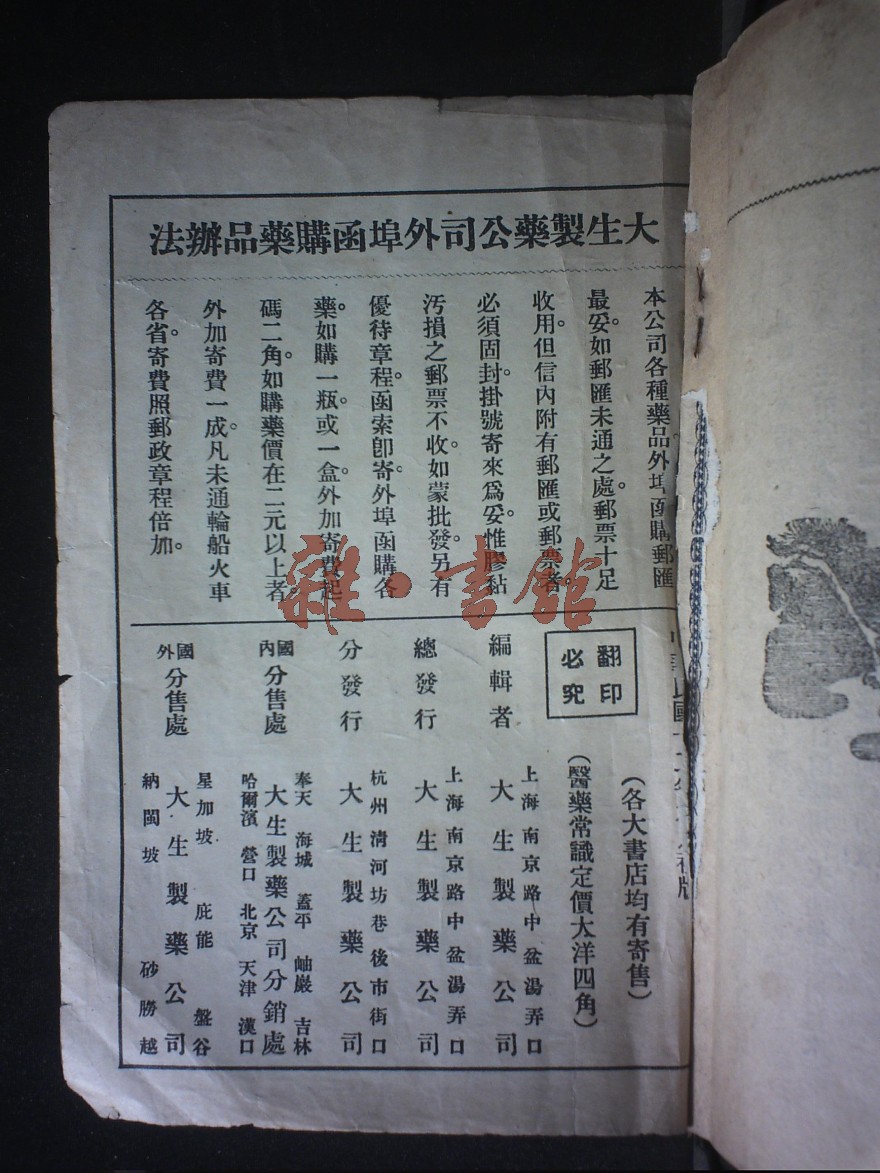 大生製藥公司外埠函購藥品辦法
本公司各種藥品外埠函購郵匯
最妥。如郵匯未通之處。郵票十足
收用。但信內附有郵匯或郵票者。
必須固封。掛號寄來爲妥。惟膠黏
汚損之郵票不收。如蒙批發。另有
優待章程。函索卽寄。外埠函購各
藥。如購一瓶。或一盒。外加寄費起
碼二角。如購藥價在二元以上者。
外加寄費一成。凡未通輪船火車
各省。寄費照郵政章程倍加。
雜·書館
民國
版
(各大書店均有寄售)
翻印
必究
(醫藥常識定價大洋四角)
編輯者
上海南京路中盆湯弄口
大生製藥公司
總發行
上海南京路中盆湯弄口
大生製藥公司
分發行
杭州清河坊巷後市街口
大生製藥公司
國內分售處
奉天 海城 蓋平 岫巖 吉林
大生製藥公司分銷處
哈爾濱 營口 北京 天津 漢口
國外分售處
星加坡 庇能 盤谷
大生製藥公司
納閩坡 砂勝越